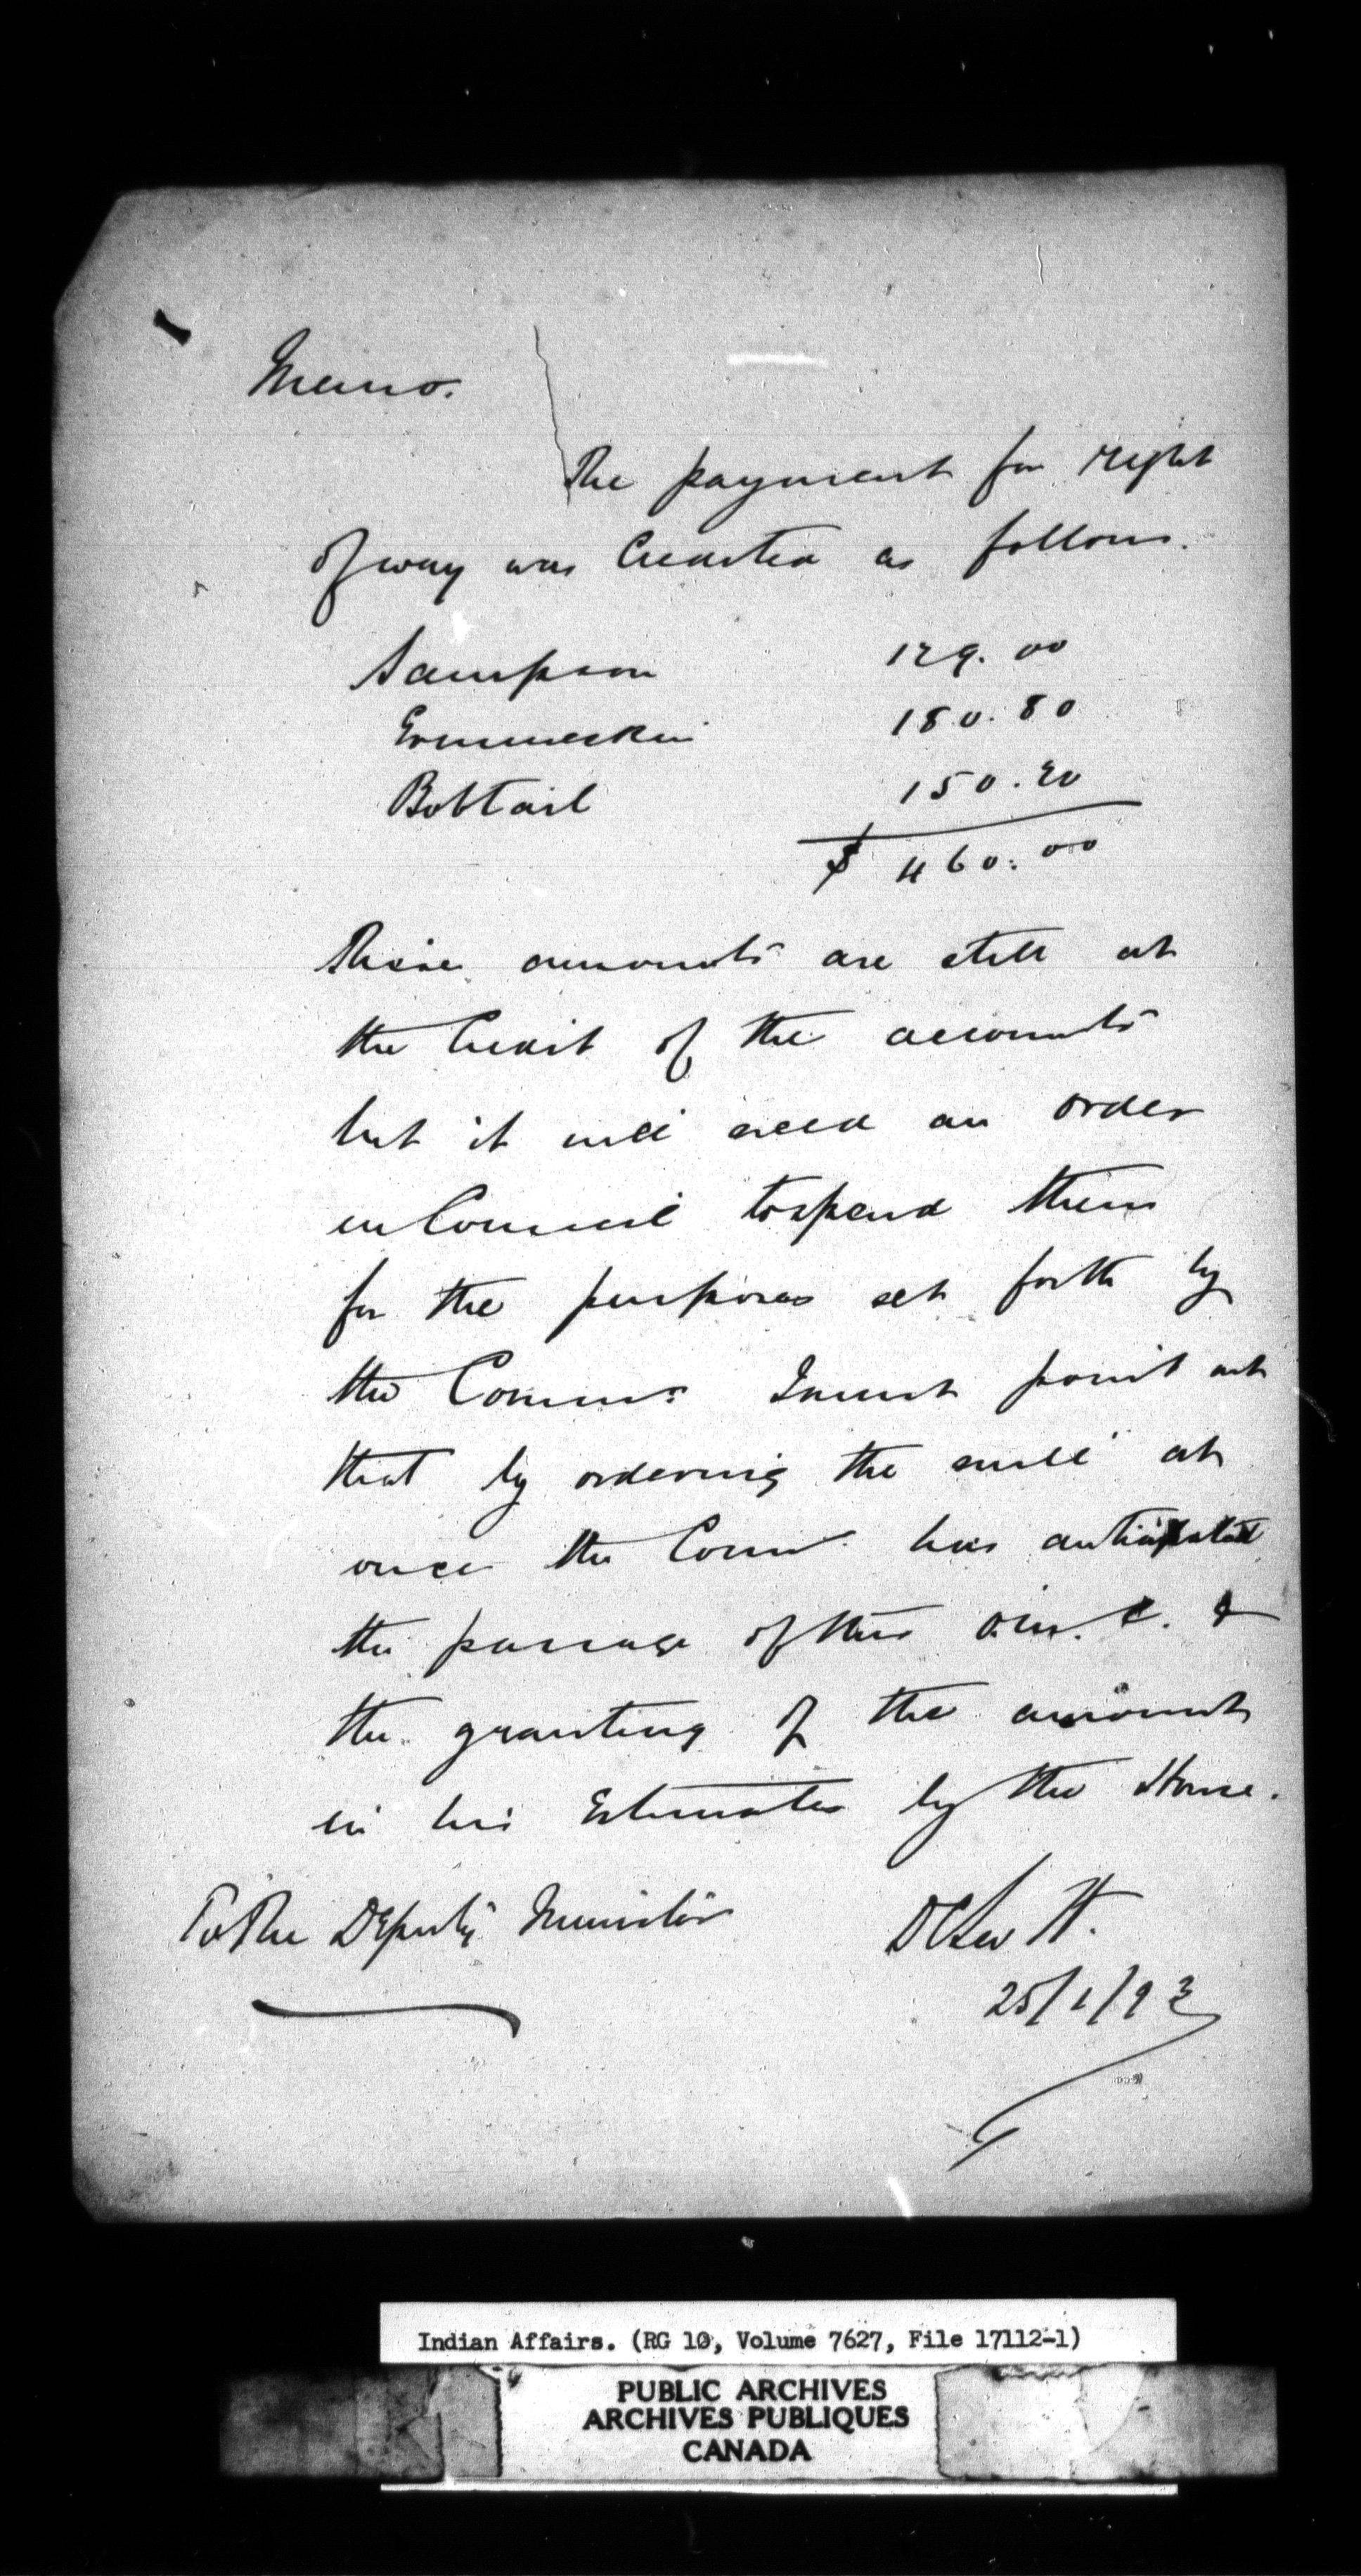 Memo.
The payment for right
of way was Credited as follows.
Sampson 129.00
Ermineskin 180.80
Bobtail 150.20
$ 460.00
These amounts are still at
the Credit of the accounts
but it will need an order
in Council to spend them
for the purposes set forth by
the Commr. I must point out
that by ordering the mill at
once the Comr. has anticipated
the passage of this O. in. C. &
the granting of the amount
in his Estimates by the House.
To The Deputy Minister
DCScott.
25/1/93
Indian Affairs. (RG 10, Volume 7627, File 17112-1)
PUBLIC ARCHIVES
ARCHIVES PUBLIQUES
CANADA